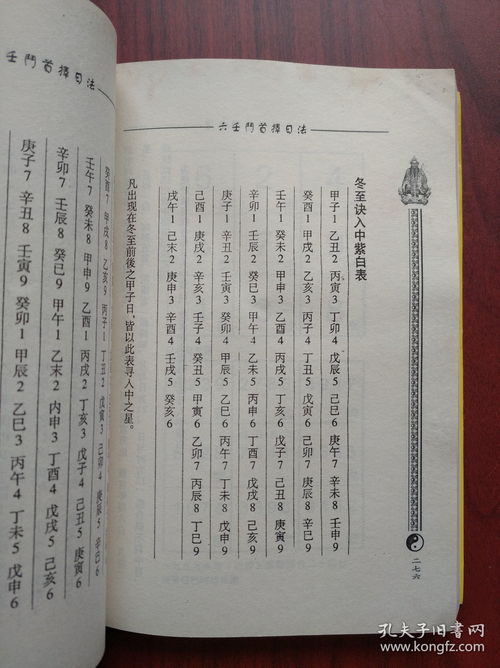 六壬鬥首擇日法
冬至诀入中紫白表
甲子1 乙丑2 丙寅3 丁卯4 戊辰5 己巳6 庚午7 辛未8 壬申9
癸酉1 甲戌2 乙亥3 丙子4 丁丑5 戊寅6 己卯7 庚辰8 辛巳9
壬午1 癸未2 甲申3 乙酉4 丙戌5 丁亥6 戊子7 己丑8 庚寅9
辛卯1 壬辰2 癸巳3 甲午4 乙未5 丙申6 丁酉7 戊戌8 己亥9
庚子1 辛丑2 壬寅3 癸卯4 甲辰5 乙巳6 丙午7 丁未8 戊申9
己酉1 庚戌2 辛亥3 壬子4 癸丑5 甲寅6 乙卯7 丙辰8 丁巳9
戊午1 己未2 庚申3 辛酉4 壬戌5 癸亥6
凡出现在冬至前後之甲子日，皆以此表寻入中之星。
二七六
壬鬥首擇日法
癸酉7 甲戌8 乙亥9 丙子1 丁丑2 戊寅3 己卯4 庚辰5 辛巳6
壬午7 癸未8 甲申9 乙酉1 丙戌2 丁亥3 戊子4 己丑5 庚寅6
辛卯7 壬辰8 癸巳9 甲午1 乙未2 内申3 丁酉4 戊戌5 己亥6
庚子7 辛丑8 壬寅9 癸卯1 甲辰2 乙巳3 丙午4 丁未5 戊申6
孔夫子旧书网
www.kongfz.com